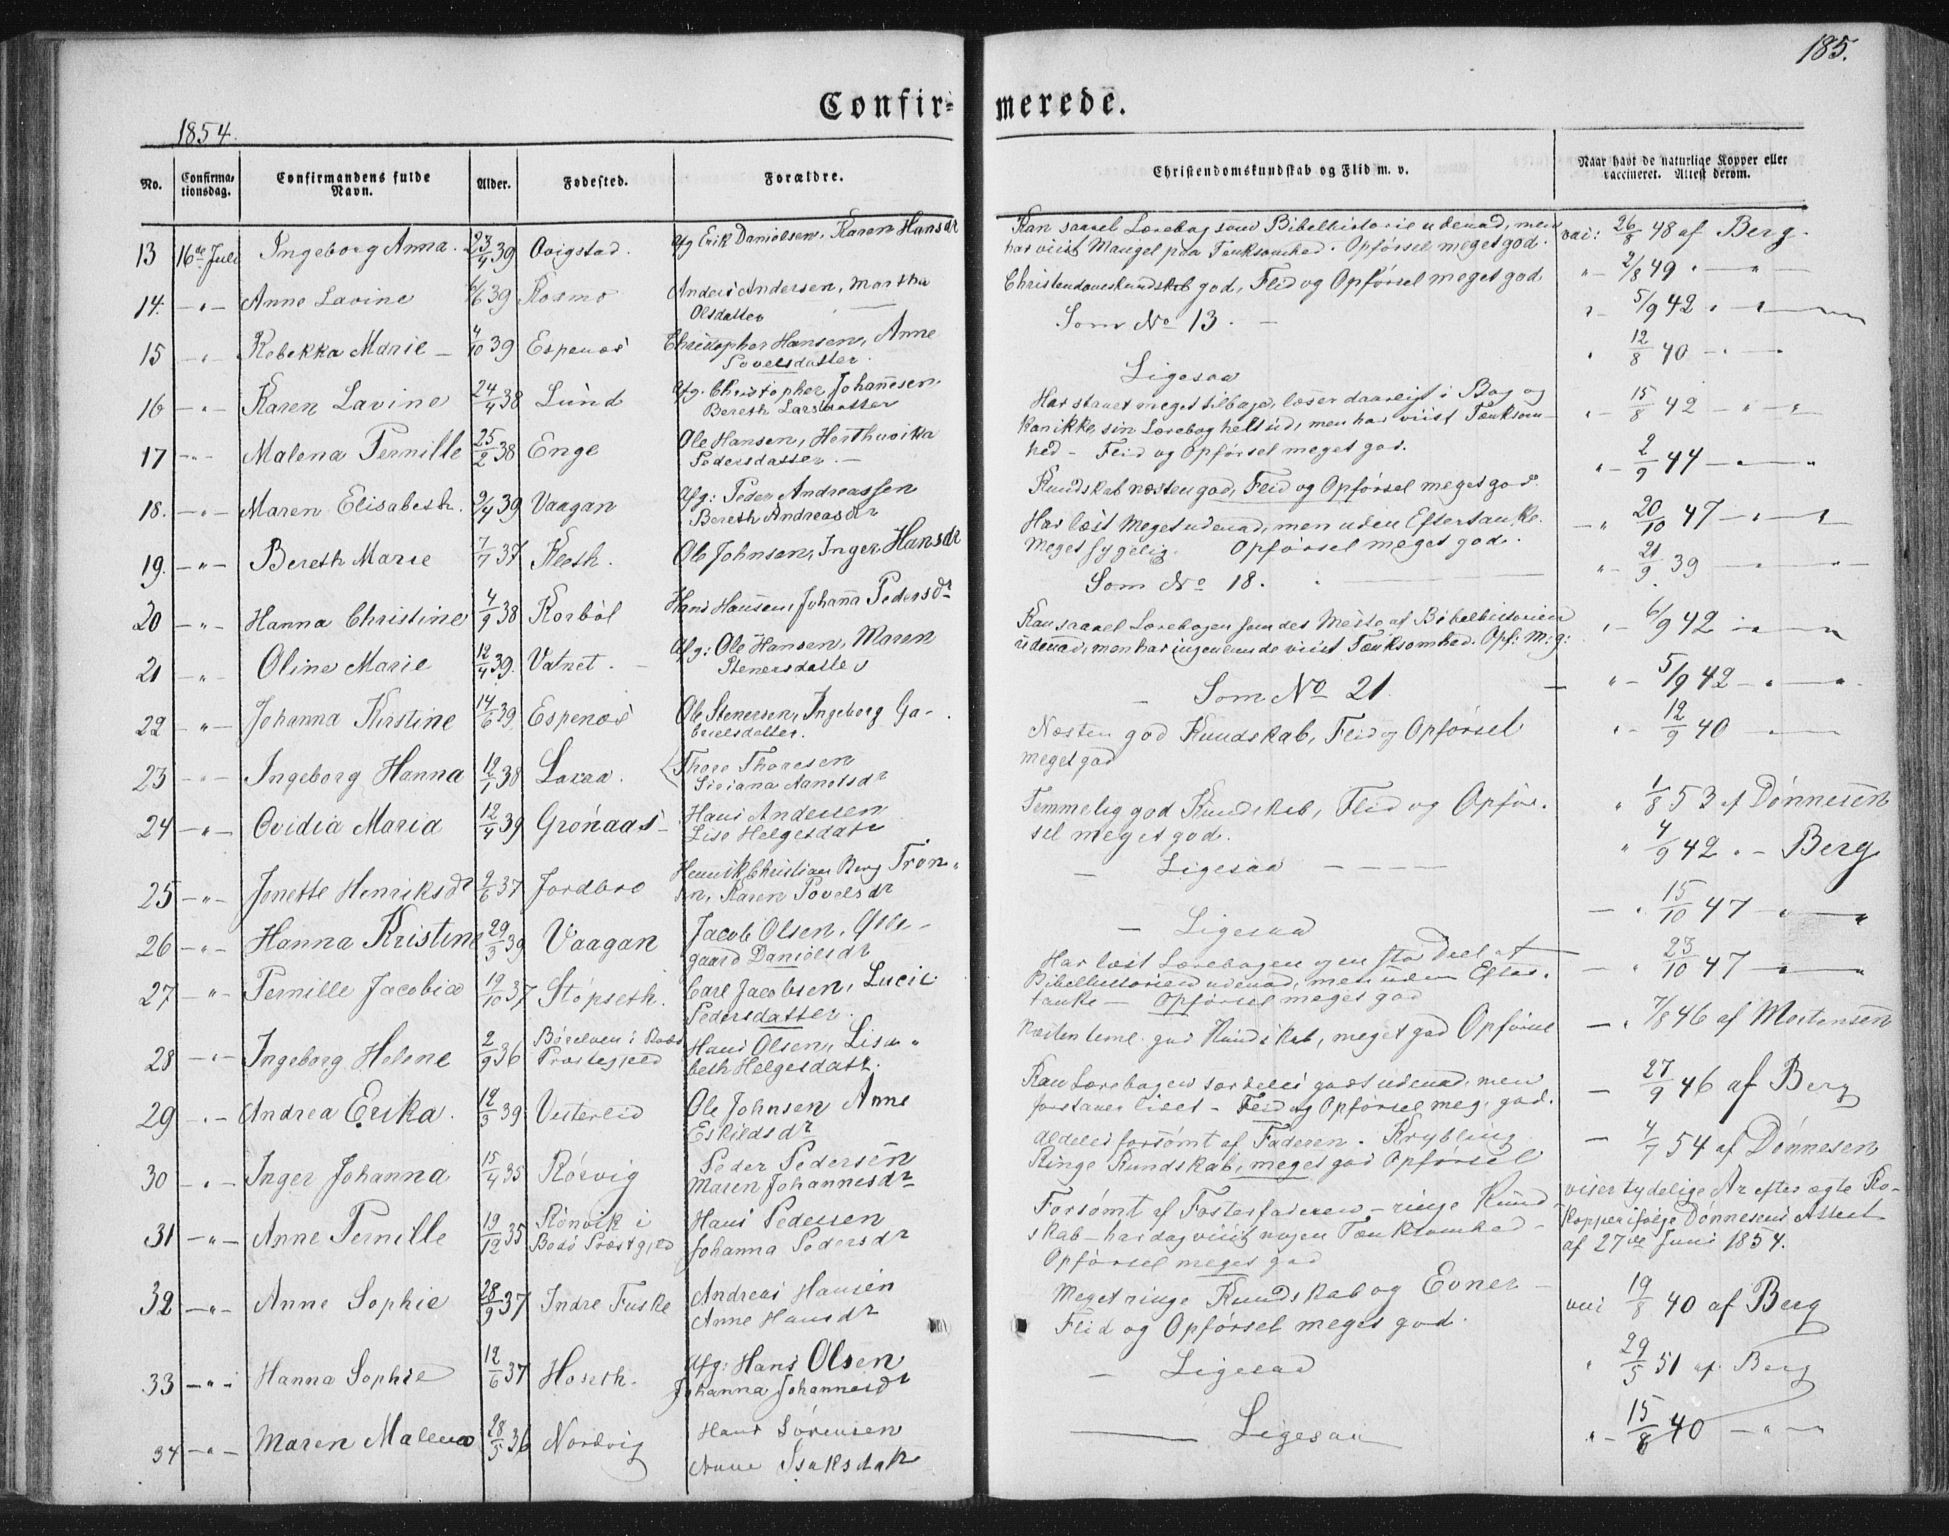 185.
Confir- merede.
1854.
No. Confirma-tionsdag. Confirmandens fulde Navn. Alder. Fødested. Forældre. Christendomskundskab og Flid m. v. Naar havt de naturlige Kopper eller vaccineret. Attest derom.
13 16de Juli Ingeborg Anna. 23/4 39 Ovigstad. Afg Erik Danielsen, Karen Hansdr
Kan saavel Lærebog som Bibelhistorie udenad, men
har viist Mangel paa Tænksomhed. Opførsel meget god. vac: 26/8 48 af Berg.
14. — " — Anne Lavine 6/6 39 Kosmo Anders Andersen, Martha
Olsdatter
Christendomskundskab god, Flid og Opførsel meget god " - 2/8 49 " — " —
15 — " Rebekka Marie — 4/10 39 Espenæs Christopher Hansen, Anne
Povelsdatter.
Som No 13. — " - 5/9 42 " — " —
16 — " — Karen Lavine 24/4 38 Lund Afg. Christopher Johannesen
Bereth Larsdatter
Ligesaa " 12/8 40 — " — "
17 — " — Malena Pernille 25/2 38 Enge Ole Hansen, Herthuvika
Pedersdatter. —
Har stavet meget tilbage, læser daarligt i Bog og
kan ikke sin Lærebog helt ud, men har viist Tænksom-
hed — Flid og Opførsel meget god. " - 15/8 42 — " — "
18. — " — Maren Elisabeth. 2/4 39 Vaagan Afg: Peder Andreassen
Bereth Andreasdr
Kundskab næsten god, Flid og Opførsel meget god " - 2/9 44 — " — "
19. — " — Bereth Marie 7/7 37 Kleth. Ole Johnsen, Inger Hansdr
Har læst Meget udenad, men uden Eftertanke.
Meget sygelig. Opførsel meget god. — " 20/10 47 — " —
20 — " — Hanna Christine 4/9 38 Korbøl Hans Hansen, Johanna Pedersdr
Som No 18. " - 21/9 39 — " — " —
21 — " — Oline Marie 12/4 39. Vatnet. — Afg: Ole Hansen, Maren
Stenersdatter
Kan saavel Lærebogen som det Meste af Bibelhistorien
udenad, men har ingenlunde viist Tænksomhed. Opf: M: g: " - 6/9 42 " — " —
22 — " — Johanna Kirstine 14/6 39 Espenæs Ole Stenersen, Ingeborg Ga-
brielsdatter.
— Som No 21. — " - 5/9 42 — " — " —
23 — " — Ingeborg Hanna 12/1 38 Laxaa. Thore Thoresen
Siriana Arnetsdr
Næsten god Kundskab, Flid og Opførsel
meget god " - 12/9 40 — " —
24 — " — Ovidia Maria 12/4 39 Grønaas — Hans Andersen
Lise Helgesdatr
Temmelig god Kundskab, Flid og Opfør-
sel meget god. " 1/8 53 af Dønnesen
25 — " — Jonette Henriksdr 2/6 37 Jordbro Henrik Christian Berg Tron-
sen, Karen Povelsdr
— Ligesaa — — — — " 4/9 42 " — Berg
26 — " — Hanna Kristine 29/3 39 Vaagan Jacob Olsen,
gaard Danielsdr
— Ligesaa — " 15/10 47 — " — "
27 — " — Pernille Jacobia 19/10 37 Støpseth. Carl Jacobsen, Lucie
Pedersdatter.
Har læst Lærebogen og en stor Deel af
Bibelhistorien udenad, men uden Efter-
tanke — Opførsel meget god — " 23/10 47 — " — "
28 — " — Ingeborg Helene 2/9 36 i
Præstegjeld Hans Olsen, Lisa-
beth Helgesdatr.
Næsten teml. god Kundskab, meget god Opførsel — " 7/8 46 af Mortensen
29 — " — Andrea Erika. 12/3 39 Vesterlid Ole Johnsen Anne
Eskildsdr
Kan Lærebogen særdeles godt udenad, men
forstaaer lidet — Flid og Opførsel meg. god. — 27/9 46 af Berg
30 — " — Inger Johanna 15/4 35 Røsvig Peder Pedersen
Maren Johannesdr
Aldeles forsømt af Faderen. Krybling
Ringe Kundskab, meget god Opførsel — 4/7 54 af Dønnesen
31 — " — Anne Pernille 19/12 35 Rønvik i
Bodø Præstgjeld Hans Pedersen
Johanna Pedersdr
Forsømt af Fosterfaderen — ringe Kund-
skab — har dog viist nogen Tænksomhed —
Opførsel meget god viser tydelige Ar efter ægte Ko-
kopper ifølge Dønnesens Attest
af 27de Juni 1854.
32 — " — Anne Sophie 28/9 37 Indre Fuske Andreas Hansen
Anne Hansdr
Meget ringe Kundskab og Evner —
Flid og Opførsel meget god. vac: 19/8 40 af Berg
33 — " — Hanna Sophie 12/6 37 Hoseth. Afg: Hans Olsen
Johanna Johannesdr
— Ligesaa " 29/5 51 af Berg
34 — " — Maren Malena 28/5 36 Nordvig Hans Sørensen
Anne Isaksdatr
— Ligesaa " - 15/8 40 — " — "